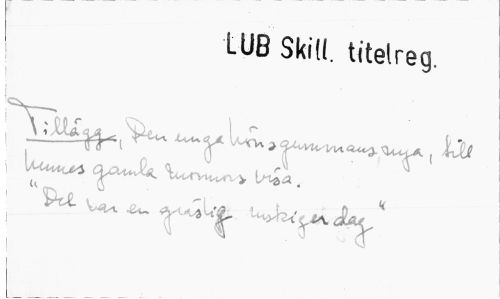 LUB Skill. titelreg.
Tillägg, Den unga hönsgummans nya, till
hennes gamla mormors visa.
"Det var en gräslig ruskiger dag"